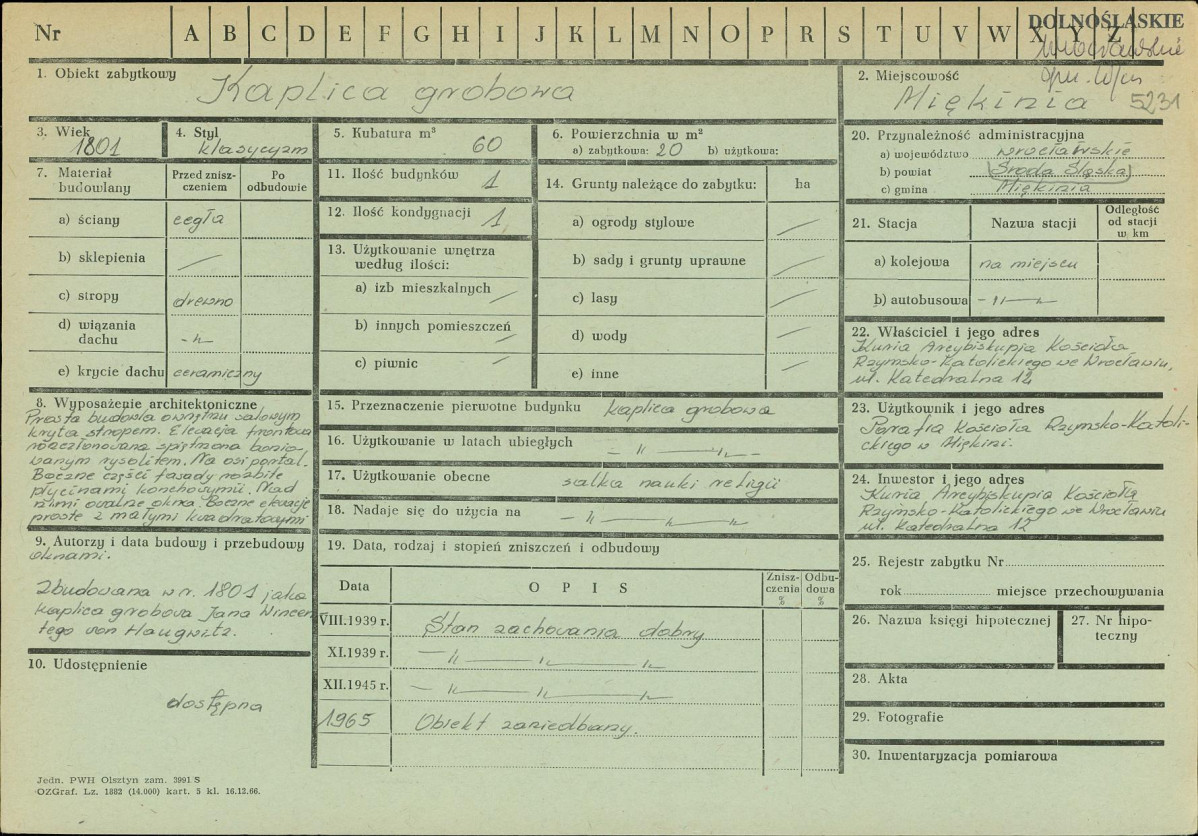 Nr A B C D E F G H I J K L M N O P R S T U V W X Y Z DOLNOŚLĄSKIE
wrocławskie
1. Obiekt zabytkowy Kaplica grobowa
2. Miejscowość gm. loco
Miękinia 5231
3. Wiek 1801
4. Styl klasycyzm
5. Kubatura m³ 60
6. Powierzchnia w m²
a) zabytkowa: 20 b) użytkowa:
7. Materiał budowlany
Przed zniszczeniem
Po odbudowie
a) ściany cegła
b) sklepienia —
c) stropy drewno
d) wiązania dachu -"-
e) krycie dachu ceramiczny
8. Wyposażenie architektoniczne
Prosta budowla o wnętrzu salowym
kryta stropem. Elewacja frontowa
rozczłonowana spiętrzona bonio-
wanym ryzolitem. Na osi portal.
Boczne części fasady rozbite
płycinami konchowymi. Nad
nimi owalne okna. Boczne elewacje
proste z małymi kwadratowymi
9. Autorzy i data budowy i przebudowy
oknami.
Zbudowana w r. 1801 jako
kaplica grobowa Jana Wincen
tego von Haugwitz.
10. Udostępnienie
dostępna
11. Ilość budynków 1
12. Ilość kondygnacji 1
13. Użytkowanie wnętrza
według ilości:
a) izb mieszkalnych —
b) innych pomieszczeń —
c) piwnic —
14. Grunty należące do zabytku: ha
a) ogrody stylowe —
b) sady i grunty uprawne —
c) lasy —
d) wody —
e) inne —
15. Przeznaczenie pierwotne budynku kaplica grobowa
16. Użytkowanie w latach ubiegłych – " – " –
17. Użytkowanie obecne salka nauki religii
18. Nadaje się do użycia na – " – " – " –
19. Data, rodzaj i stopień zniszczeń i odbudowy
Data OPIS Zniszczenia % Odbudowa %
VIII.1939 r. Stan zachowania dobry
XI.1939 r. – " – " – " –
XII.1945 r. – " – " – " –
1965 Obiekt zaniedbany.
20. Przynależność administracyjna
a) województwo wrocławskie
b) powiat Środa Śląska
c) gmina Miękinia
21. Stacja Nazwa stacji Odległość od stacji w km
a) kolejowa na miejscu
b) autobusowa – " – " –
22. Właściciel i jego adres
Kuria Arcybiskupia Kościoła
Rzymsko-Katolickiego we Wrocławiu,
ul. Katedralna 12
23. Użytkownik i jego adres
Parafia Kościoła Rzymsko-Katoli-
ckiego w Miękini.
24. Inwestor i jego adres
Kuria Arcybiskupia Kościoła
Rzymsko-Katolickiego we Wrocławiu
ul. Katedralna 12
25. Rejestr zabytku Nr
rok miejsce przechowywania
26. Nazwa księgi hipotecznej
27. Nr hipoteczny
28. Akta
29. Fotografie
30. Inwentaryzacja pomiarowa
Jedn. PWH Olsztyn zam. 3991 S
OZGraf. Lz. 1882 (14.000) kart. 5 kl. 16.12.66.